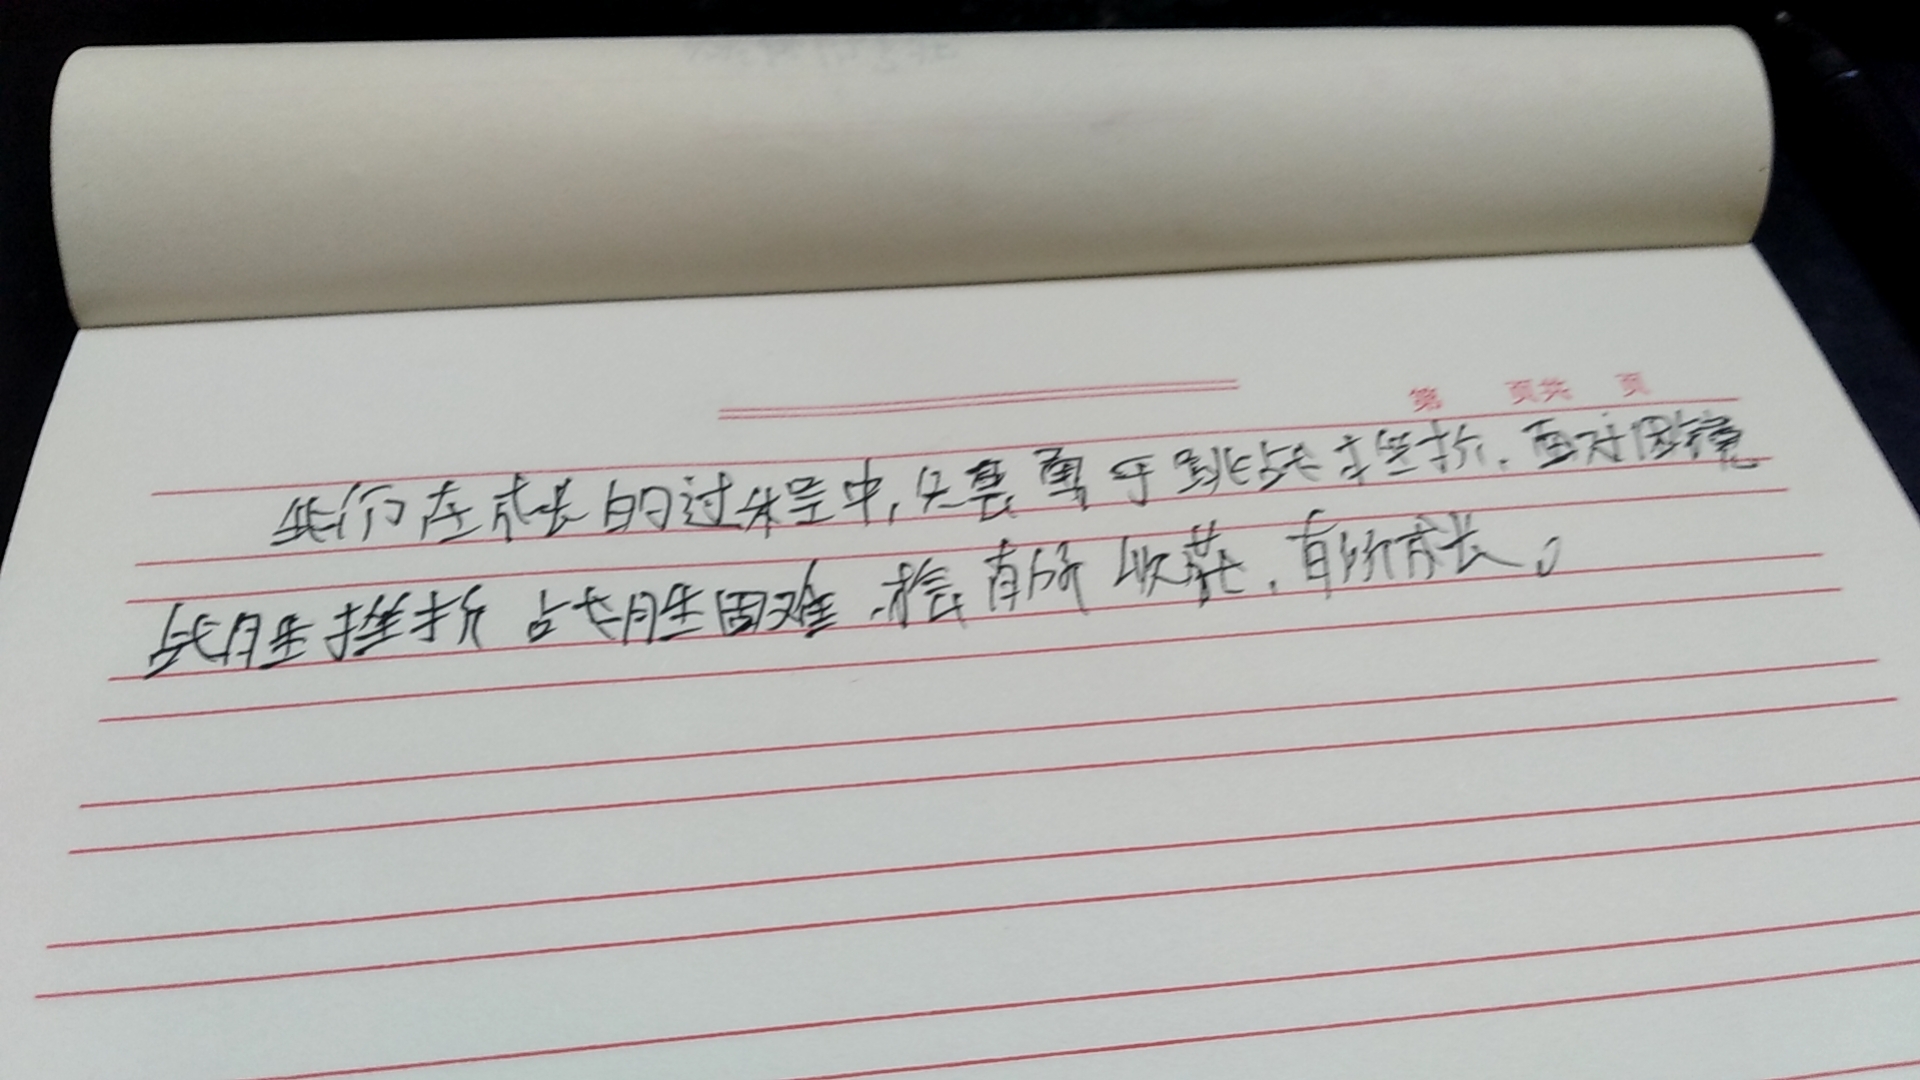 第 页共 页
我们在成长的过程中,只要勇于跳战挫折,面对困境
战胜挫折 战胜困难,才会有所收获,有所成长。